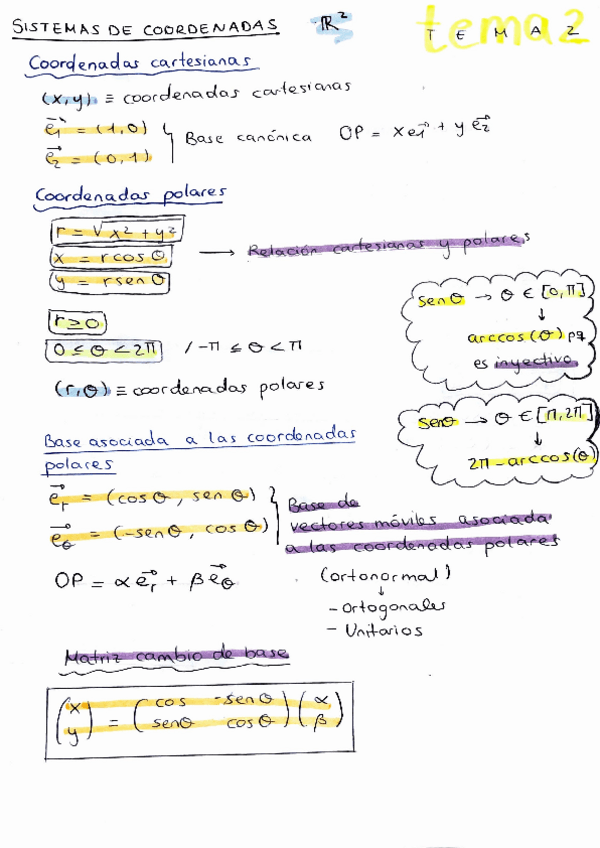 SISTEMAS DE COORDENADAS ℝ² tema 2 TEMA 2
Coordenadas cartesianas
(x,y) ≡ coordenadas cartesianas
e₁⃗ = (1,0)
e₂⃗ = (0,1)
Base canónica OP = x e₁⃗ + y e₂⃗
Coordenadas polares
r = √x² + y²
x = r cos θ
y = r sen θ
→ Relación cartesianas y polares
r ≥ 0
0 ≤ θ < 2π / -π ≤ θ < π
(r,θ) ≡ coordenadas polares
sen θ → θ ∈ [0,π]
↓
arccos(θ) pq
es inyectivo
sen θ → θ ∈ [π,2π]
↓
2π - arccos(θ)
Base asociada a las coordenadas
polares
e_r⃗ = (cos θ, sen θ)
e_θ⃗ = (-sen θ, cos θ)
Base de
vectores móviles asociada
a las coordenadas polares
(ortonormal)
↓
- Ortogonales
- Unitarios
OP = α e_r⃗ + β e_θ⃗
Matriz cambio de base
(x y) = (cos -sen θ sen θ cos θ) (α β)